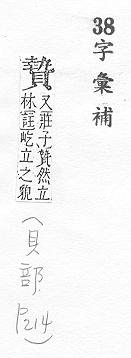 38字彙補
贄
又莊子贄然立
林註屹立之貌
(貝部 P214)